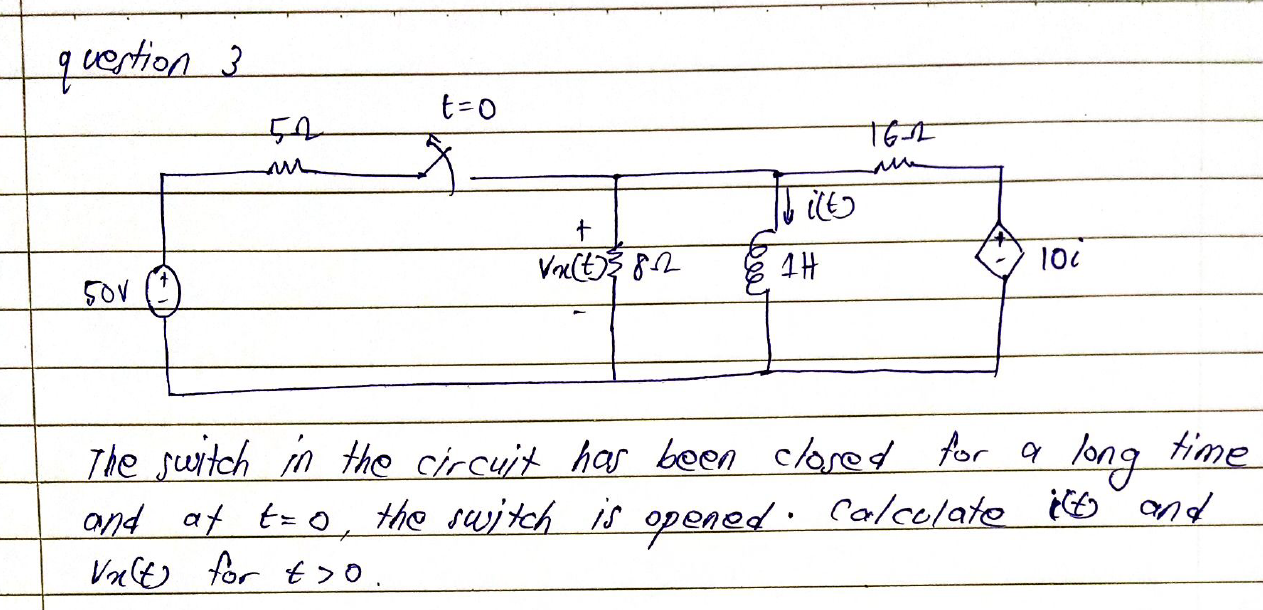 question 3
t=0
5Ω
16Ω
i(t)
+
Vx(t) 8Ω
1H
+
-
10i
50V
+
-
-
The switch in the circuit has been closed for a long time
and at t=0, the switch is opened. Calculate i(t) and
Vx(t) for t>0.